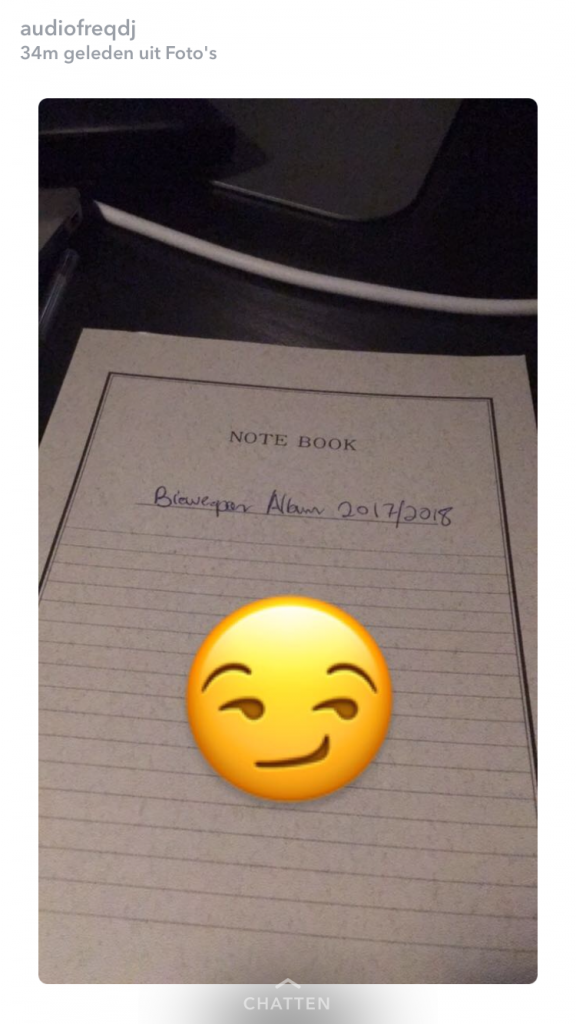 audiofreqdj
34m geleden uit Foto's
NOTE BOOK
Bioweapon Album 2017/2018
CHATTEN